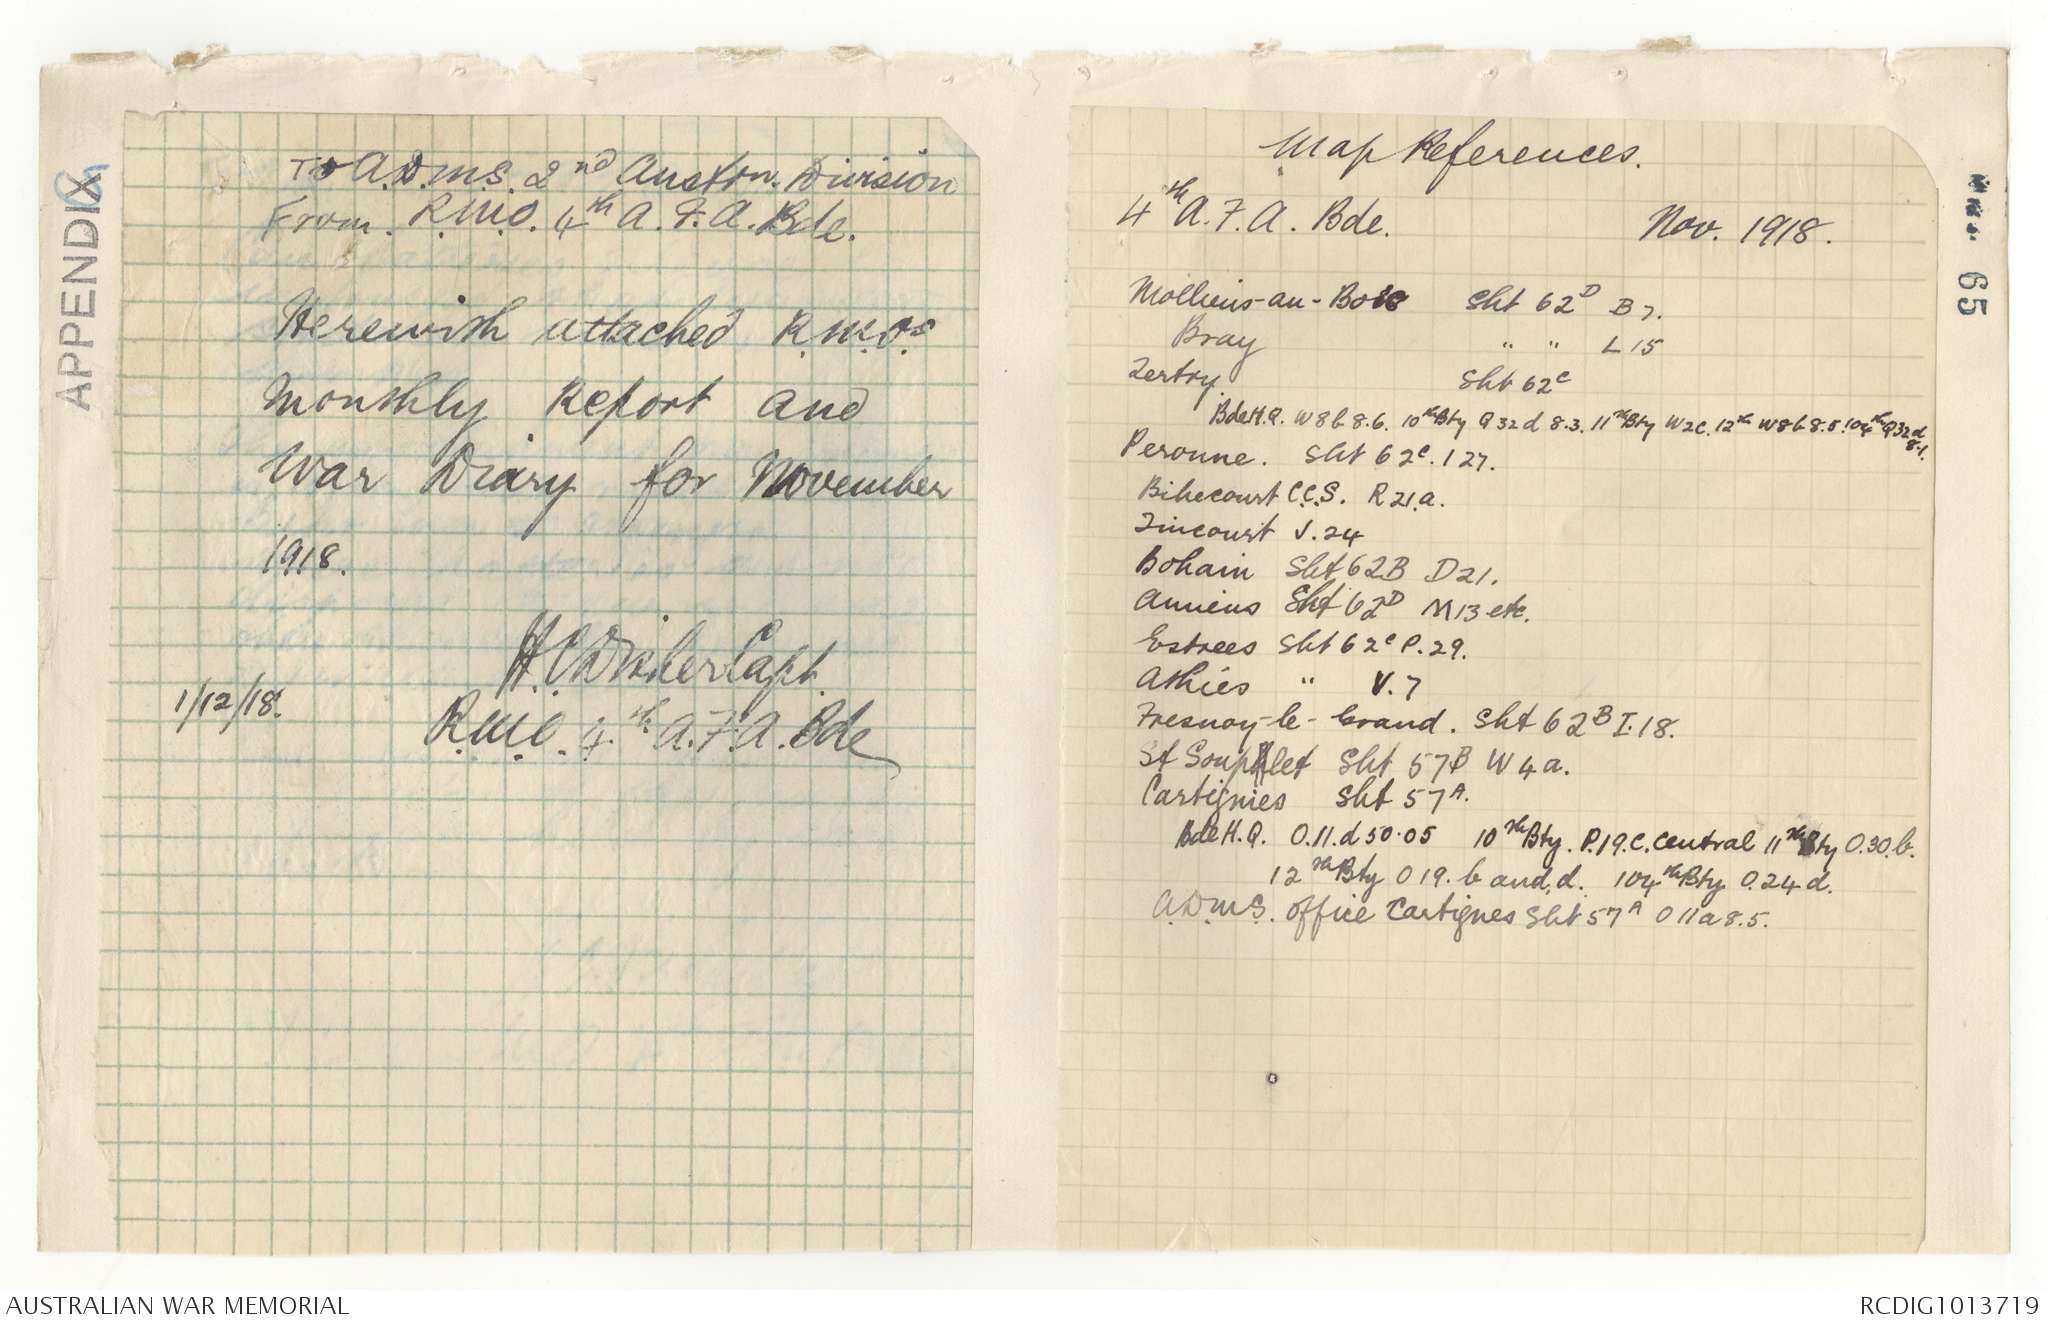 APPENDIX
To A.D.M.S. 2nd Austrn. Division
From. R.M.O. 4th A.F.A. Bde.
Herewith attached R.M.O's
Monthly Report and
War Diary for November
1918.
Capt.
1/12/18.
R.M.O. 4th A.F.A. Bde
Map References.
4th A.F.A. Bde. Nov. 1918.
Molliens-au-Bois Sht 62D B7.
Bray " " L 15
Tertry Sht 62C
Bde H.Q. W8b.8.6. 10th Bty Q32d 8.3. 11th Bty W2c. 12th W8b.8.5. 104th Q32d 8.1.
Peronne. Sht 62C. I 27.
Bihecourt C.C.S. R21.a.
Tincourt J.24
Bohain Sht 62B D21.
Amiens Sht 62D M13 etc.
Estrees Sht 62C P.29.
Athies " V.7
Fresnoy-le-Grand. Sht 62B I.18.
St Souplet Sht 57B W4a.
Cartignies Sht 57A.
Bde H.Q. O.11.d 50.05 10th Bty. P.19.C. Central 11th Bty O.30.b.
12th Bty O19.b and.d. 104th Bty O.24 d.
A.D.M.S. Office Cartignes Sht 57A O11a8.5.
65
AUSTRALIAN WAR MEMORIAL
RCDIG1013719